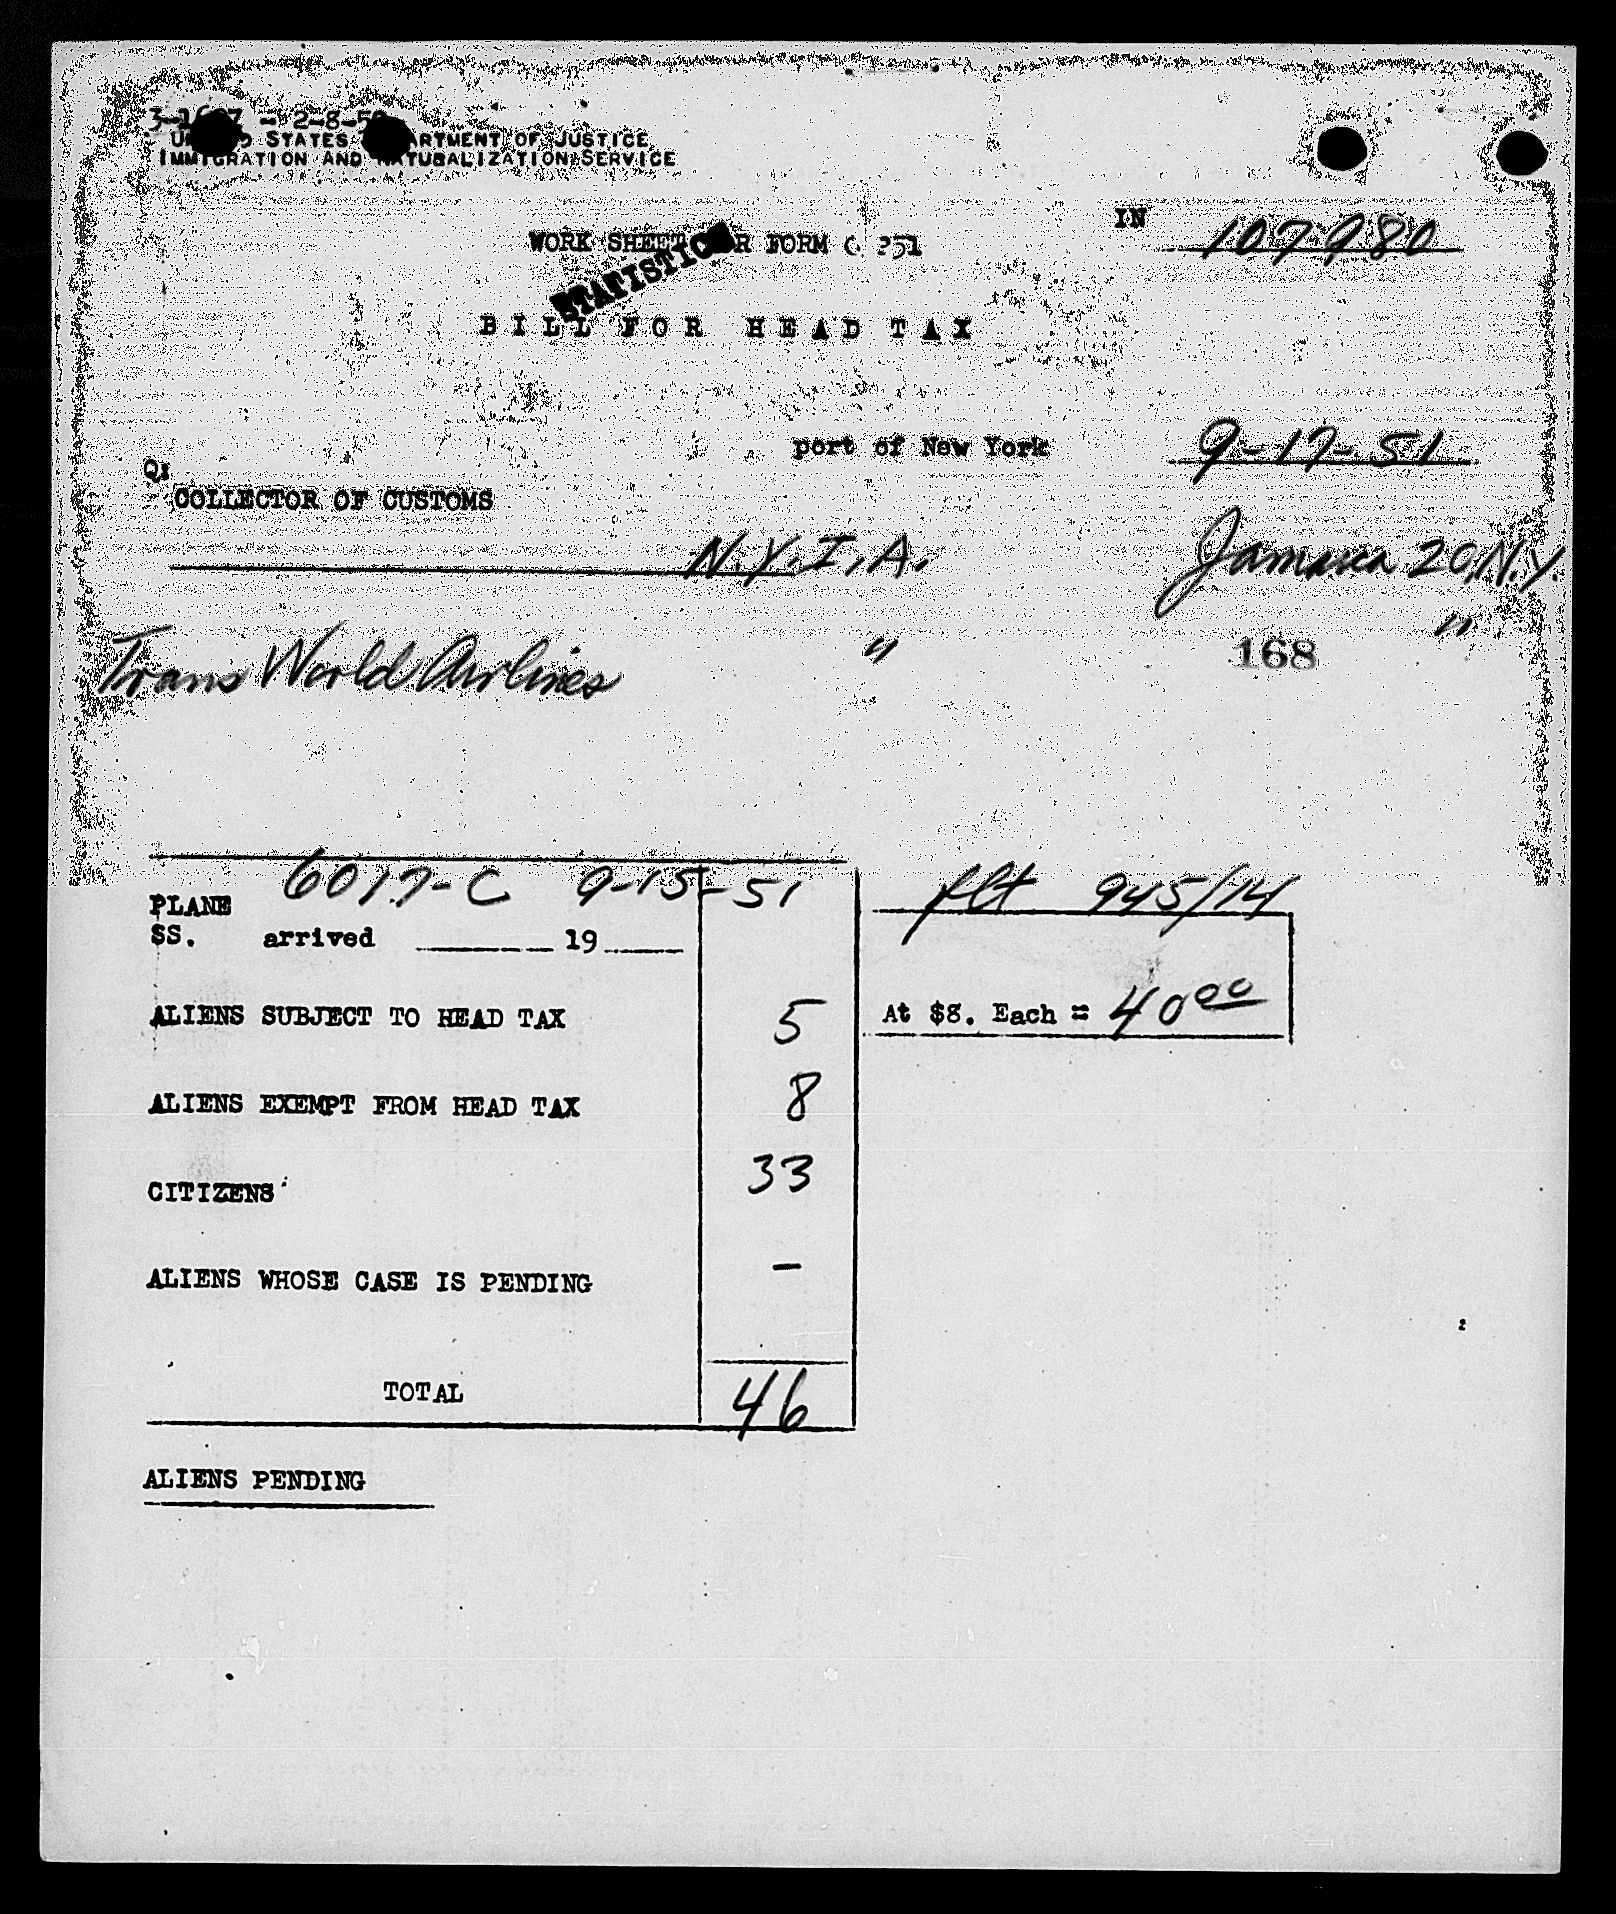 - 2-8-50
UNITED STATES DEPARTMENT OF JUSTICE
IMMIGRATION AND NATURALIZATION SERVICE
IN 107980
WORK SHEET FOR FORM 351
STATISTICS
BILL FOR HEAD TAX
port of New York 9-17-51
COLLECTOR OF CUSTOMS
N.Y.I.A. Jamaica 20, N.Y.
Trans World Airlines " 168 "
PLANE 6017-C 9-15-51 flt 945/14
SS. arrived 19
ALIENS SUBJECT TO HEAD TAX 5 At $8. Each = 40 00
ALIENS EXEMPT FROM HEAD TAX 8
CITIZENS 33
ALIENS WHOSE CASE IS PENDING -
TOTAL 46
ALIENS PENDING